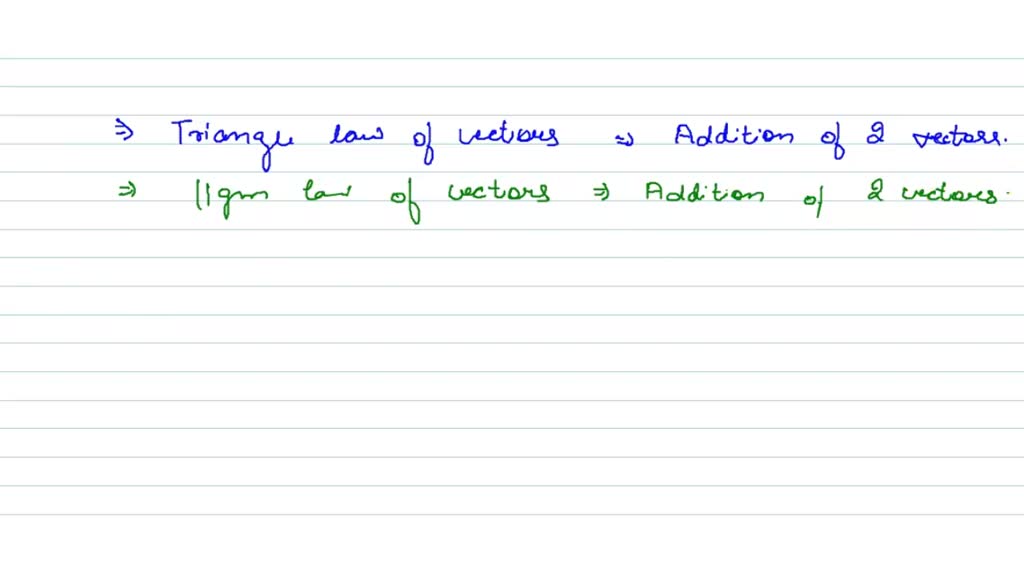 ⇒ Triangle law of vectors ⇒ Addition of 2 vectors.
⇒ ||gm law of vectors ⇒ Addition of 2 vectors.